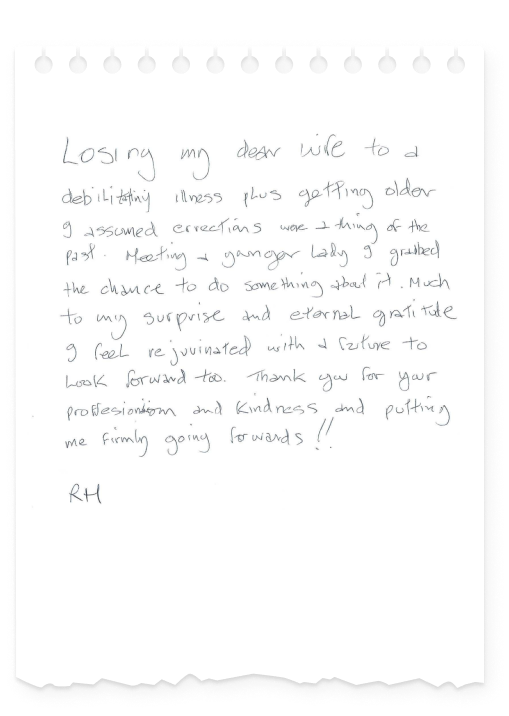 Losing my dear wife to a
debilitating illness plus getting older
I assumed errections were a thing of the
past. Meeting a younger lady I grabbed
the chance to do something about it. Much
to my surprise and eternal gratitude
I feel rejuvinated with a future to
Look forward too. Thank you for your
proffesionism and kindness and putting
me firmly going forwards !!
RH